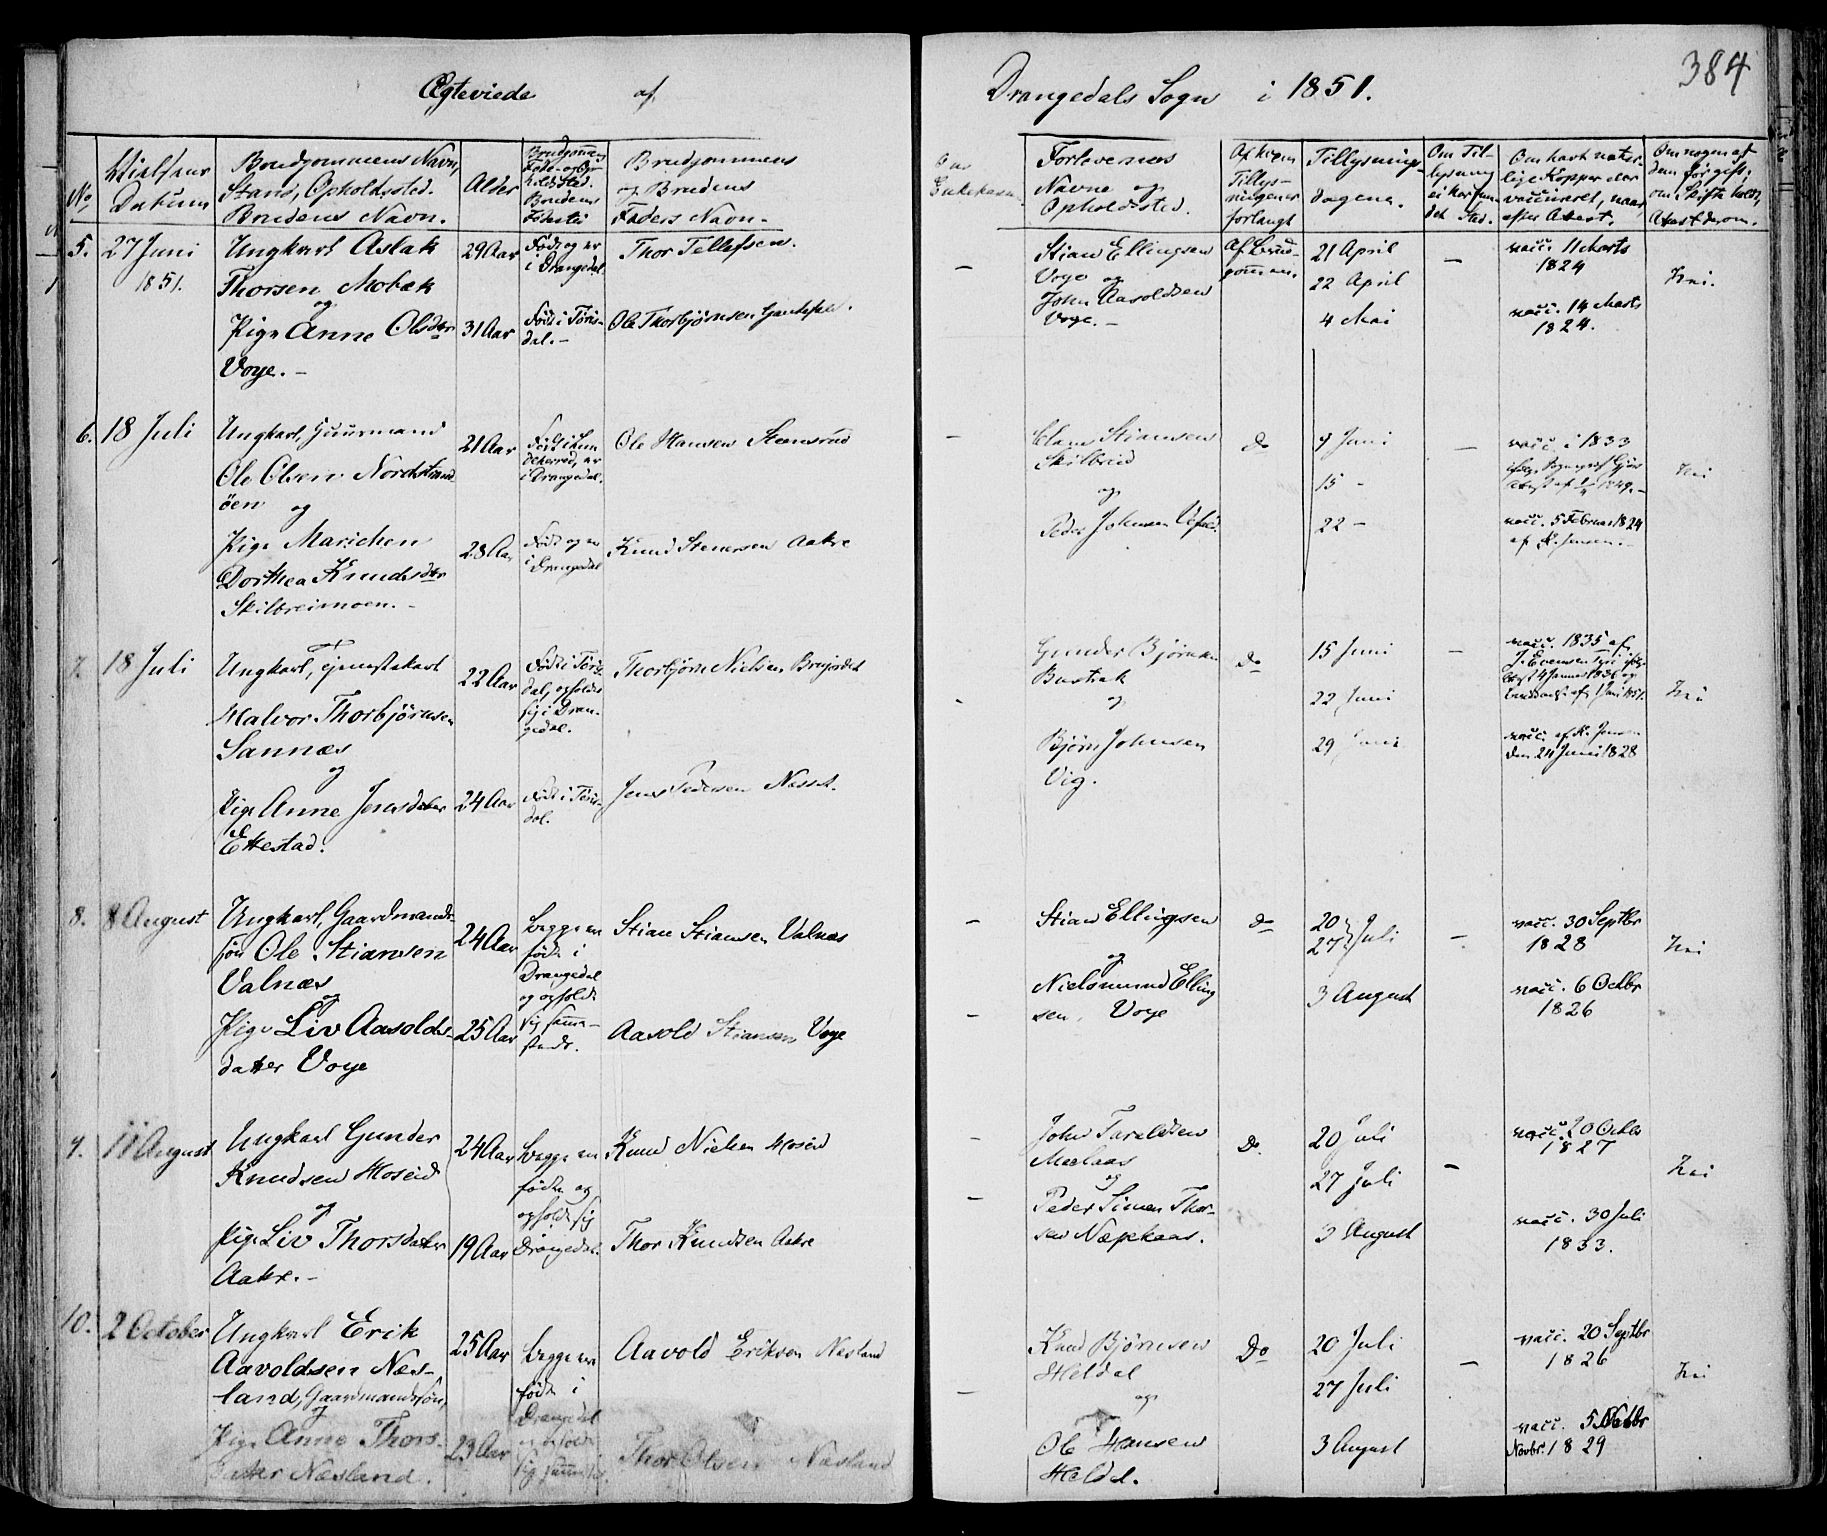 384
Ægteviede af Drangedals Sogn i 1851.
No
Datum
Brudgommens Navn,
Stand, Opholdssted.
Brudens Navn.
Alder
Brudgommens
Brudens
Fødested
Brudgommens
og Brudens
Faders Navn.
Om
Forlovernes
Navne og
Opholdssted.
Af hvem
Tillys-
ningen er
forlangt
Tillysnings-
dagene.
Om Til-
lysning
Om havt natur-
lige Kopper eller
vaccineret, naar
efter Attest.
Om nogen af
dem før gift,
om Skifte holdt,
Attest derom.
5. 27 Juni
1851.
Ungkarl Aslak
Thorsen Mobæk
og
Pige Anne Olsdtr
Voje. -
29 Aar
31 Aar
Født og er
i Drangedal
Født i Tøris-
dal. -
Thor Tellefsen.
Ole Thorbjørnsen
-
Stian Ellingsen
Voje og
John Aavoldsen
Voje. -
Af Brud-
gommen.
21 April
22 April
4 Mai
-
vacc. 11 Marts
1824
vacc. 14 Marts
1824.
Nei.
6. 18 Juli
Ungkarl, Huusmand
Ole Olsen Nordstrand
øen og
Pige Marichen
Dorthea Knudsdtr
Skilbreimoen. -
21 Aar
28 Aar
i Drangedal.
Født og er
i Drangedal
Ole Hansen Steensrud
Knud Stenersen Aakre
-
Claus Stiansen
Skilbred
og
Peder Johnsen
Do
9 Juni
15 -
22 -
-
vacc. i 1833
vacc. 5 Februar 1824
af K. Jensen. -
Nei
7. 18 Juli
Ungkarl, Tjenestekarl
Halvor Thorbjørnsen
Sannæs
og
Pige Anne Jensdatter
Ettestad.
22 Aar
24 Aar
Født i Tøris-
dal, opholder
sig i Dran-
gedal.
Født i Tøris-
dal.
Thorbjørn Nielsen
Jens Pedersen Næsset.
-
Gunder Bjørnsen
Bostrak
og
Bjørn Johnsen
Vig.
Do
15 Juni
22 Juni
29 Juni
-
vacc. 1835 af
vacc. af K. Jensen
den 24 Juni 1828
Nei
8. 8 August
Ungkarl, Gaardmands-
søn Ole Stiansen
Valnæs
og
Pige Liv Aavolds-
datter Voje
24 Aar
25 Aar
begge ere
fødte i
Drangedal
og opholde
sig samme-
steds.
Stian Stiansen Valnæs
Aavold Stiansen Voje
-
-
Stian Ellingsen
og
Nielsmund Elling
sen, Voje
Do
20
27 Juli
3 August
-
vacc. 30 Septbr
1828
vacc. 6 Octbr
1826
Nei
9. 11 August
Ungkarl Gunder
Knudsen Hoseid
og
Pige Liv Thorsdatter
Aakre. -
24 Aar
19 Aar
begge ere
fødte og
opholde sig
Drangedal.
Knud Nielsen Hoseid
Thor Knudsen Aakre
-
-
John Taraldsen
Meelaas
og
Peder Simen Thor-
sen Næpkaas.
Do.
20 Juli
27 Juli
3 August
-
vacc. 20 Octbr
1827
vacc. 30 Juli
1833.
Nei
10. 2 October
Ungkarl Erik
Aavoldsen Næs-
land, Gaardmandssøn,
og
Pige Anne Thors-
datter Næsland.
25 Aar
23 Aar
begge ere
fødte i
Drangedal
og opholde
Aavold Eriksen Næsland
Thor Olsen Næsland
-
Knud Bjørnsen
Heldal
og
Ole Hansen
Heldal.
Do
20 Juli
27 Juli
3 August
-
vacc. 20 Septbr
1826
vacc. 5
Novbr. 1829
Nei